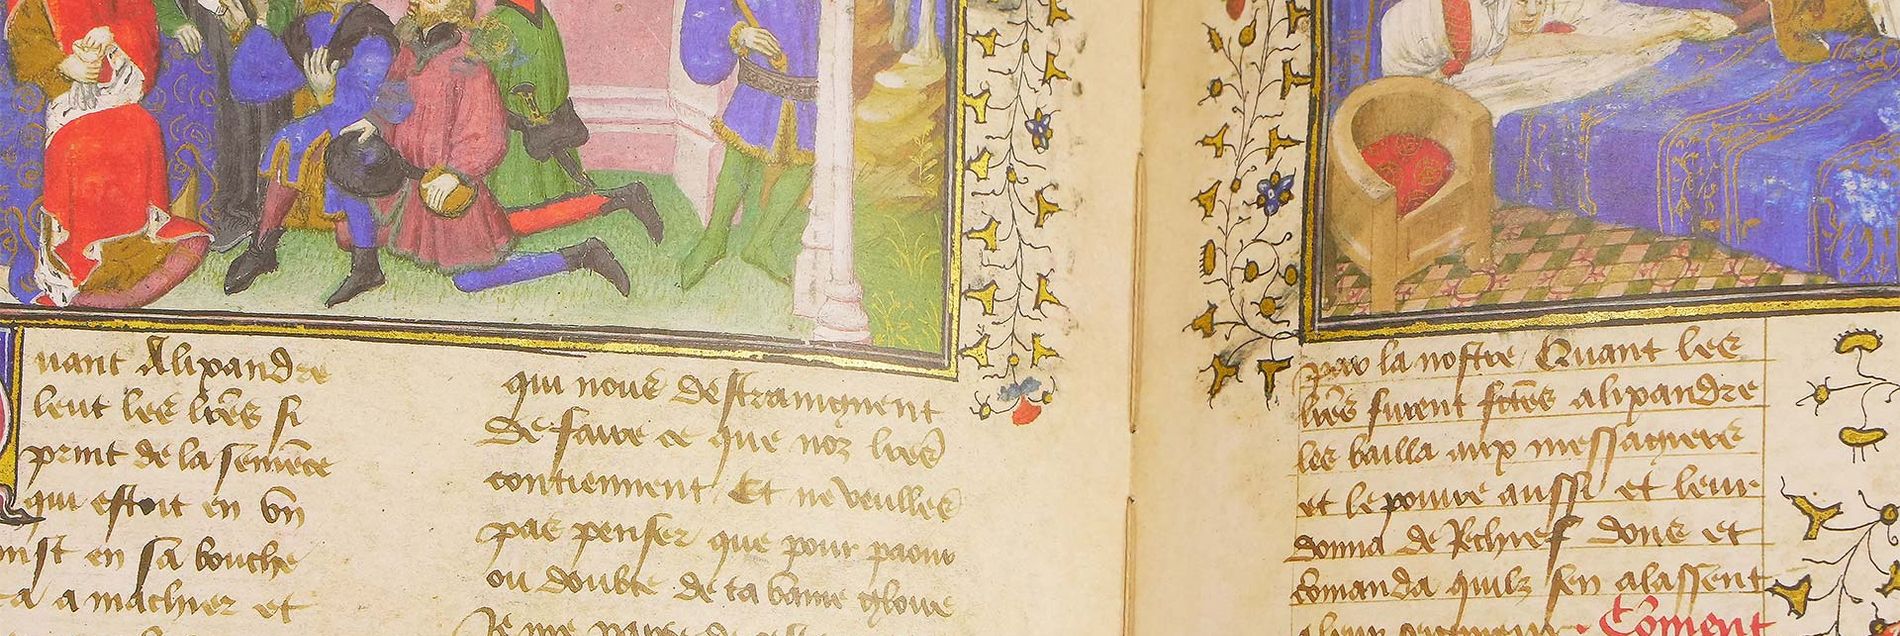 Quant Alixandre
leut les lr̃es si
print de la semẽce
qui estoit en vn
mist en sa bouche
a machier et
qui nous destraingnent
de faire ce que noz lr̃es
contiennent Et ne veulles
pas penser que pour paour
ou doubte de ta vaine gloire
par la nostre Quant les
lr̃es furent fc̃tes alixandre
les bailla aux messagiers
et le poivre aussi et leur
donna de Rechief dons et
cõmanda quilz sen alassent
Coment